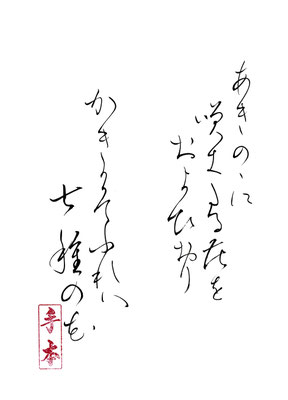 あきのゝに
咲きたる花を
およひをり
かきかそふれハ
七種の花
手本